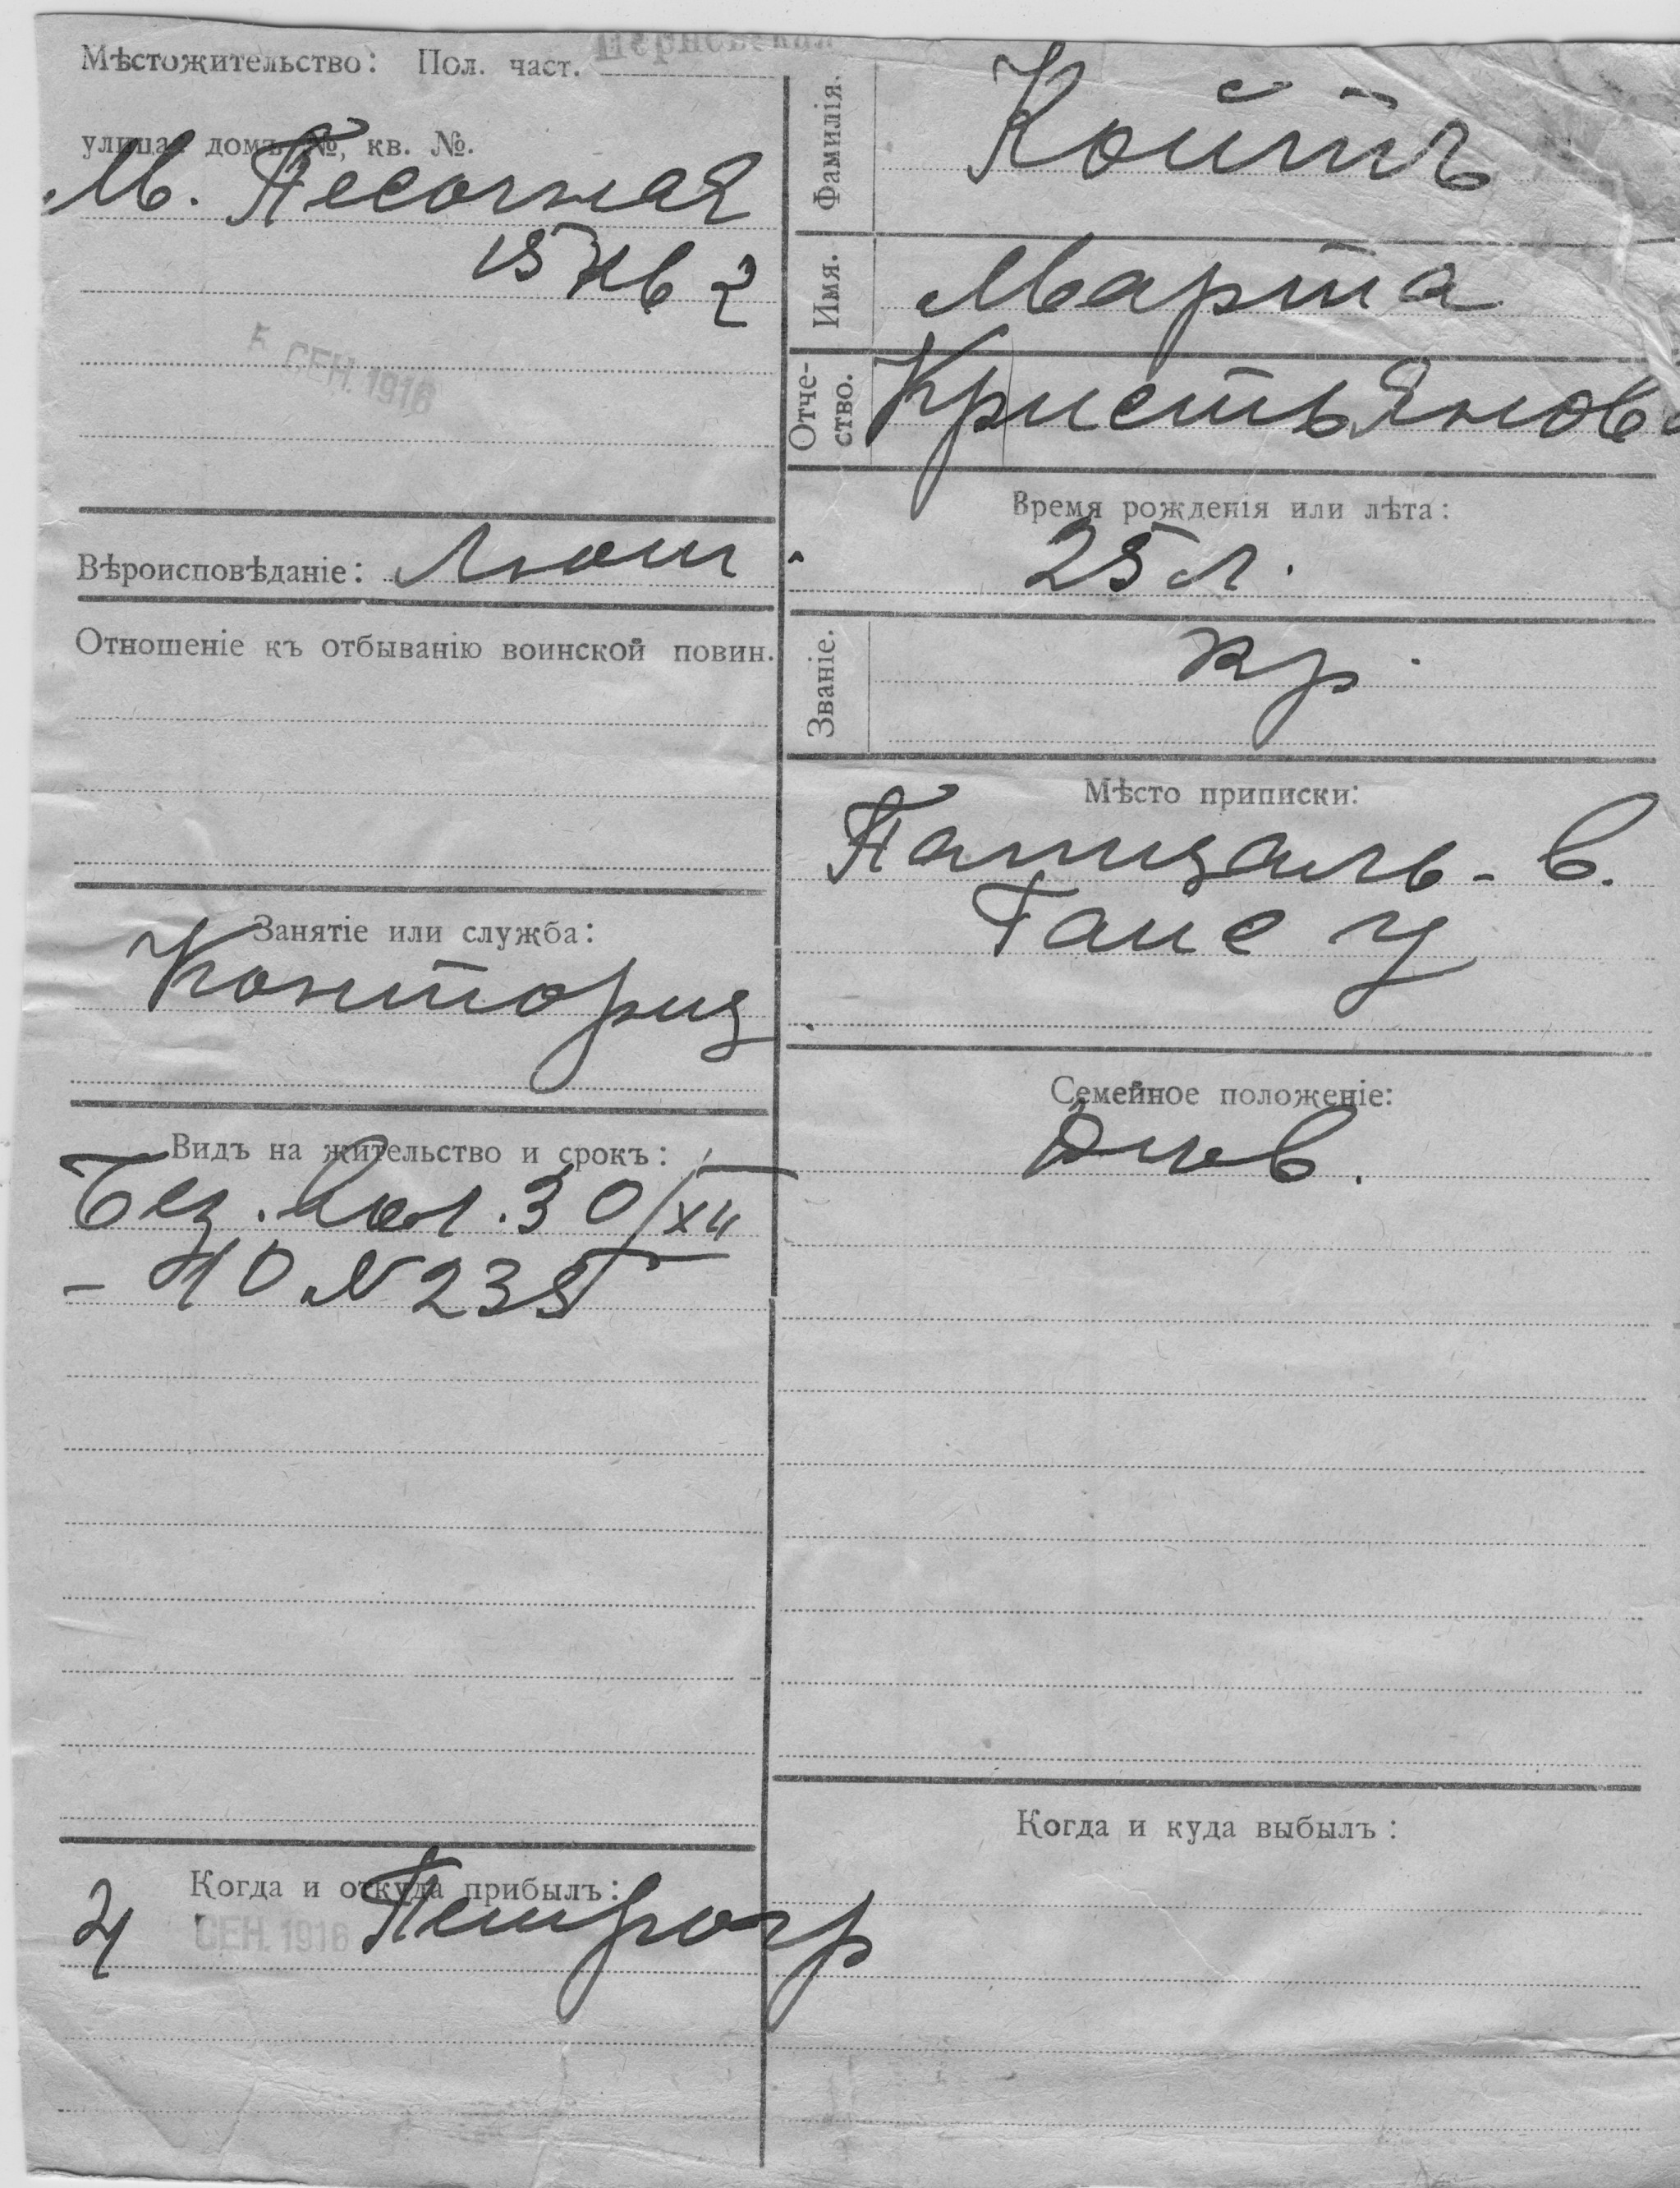 Мѣстожительство: Пол. част.
улица, домъ №, кв. №.
М. Песочная
15 кв 2
5 СЕН. 1916
Вѣроисповѣданіе: Лют
Отношеніе къ отбыванію воинской повин.
Занятіе или служба:
Конториц
Видъ на жительство и срокъ:
Без. 30/XII
- 10 № 235
Когда и откуда прибылъ:
4 СЕН. 1916 Петрогр
Фамилія. Койтъ
Имя. Марта
Отче-
ство. Кристьянов
Время рожденія или лѣта:
25 л.
Званіе. кр.
Мѣсто приписки:
Патцаль - в.
Гапс у
Семейное положеніе:
Дѣв.
Когда и куда выбылъ: